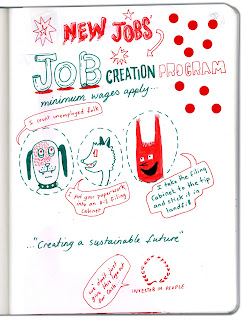 NEW JOBS
JOB CREATION PROGRAM
minimum wages apply...
I count unemployed folk
I put your paperwork
into an A-Z filing
cabinet
I take the filing
cabinet to the tip
and stick it in
landfill
..."Creating a sustainable future"
we don't just
give this
out
INVESTER IN PEOPLE